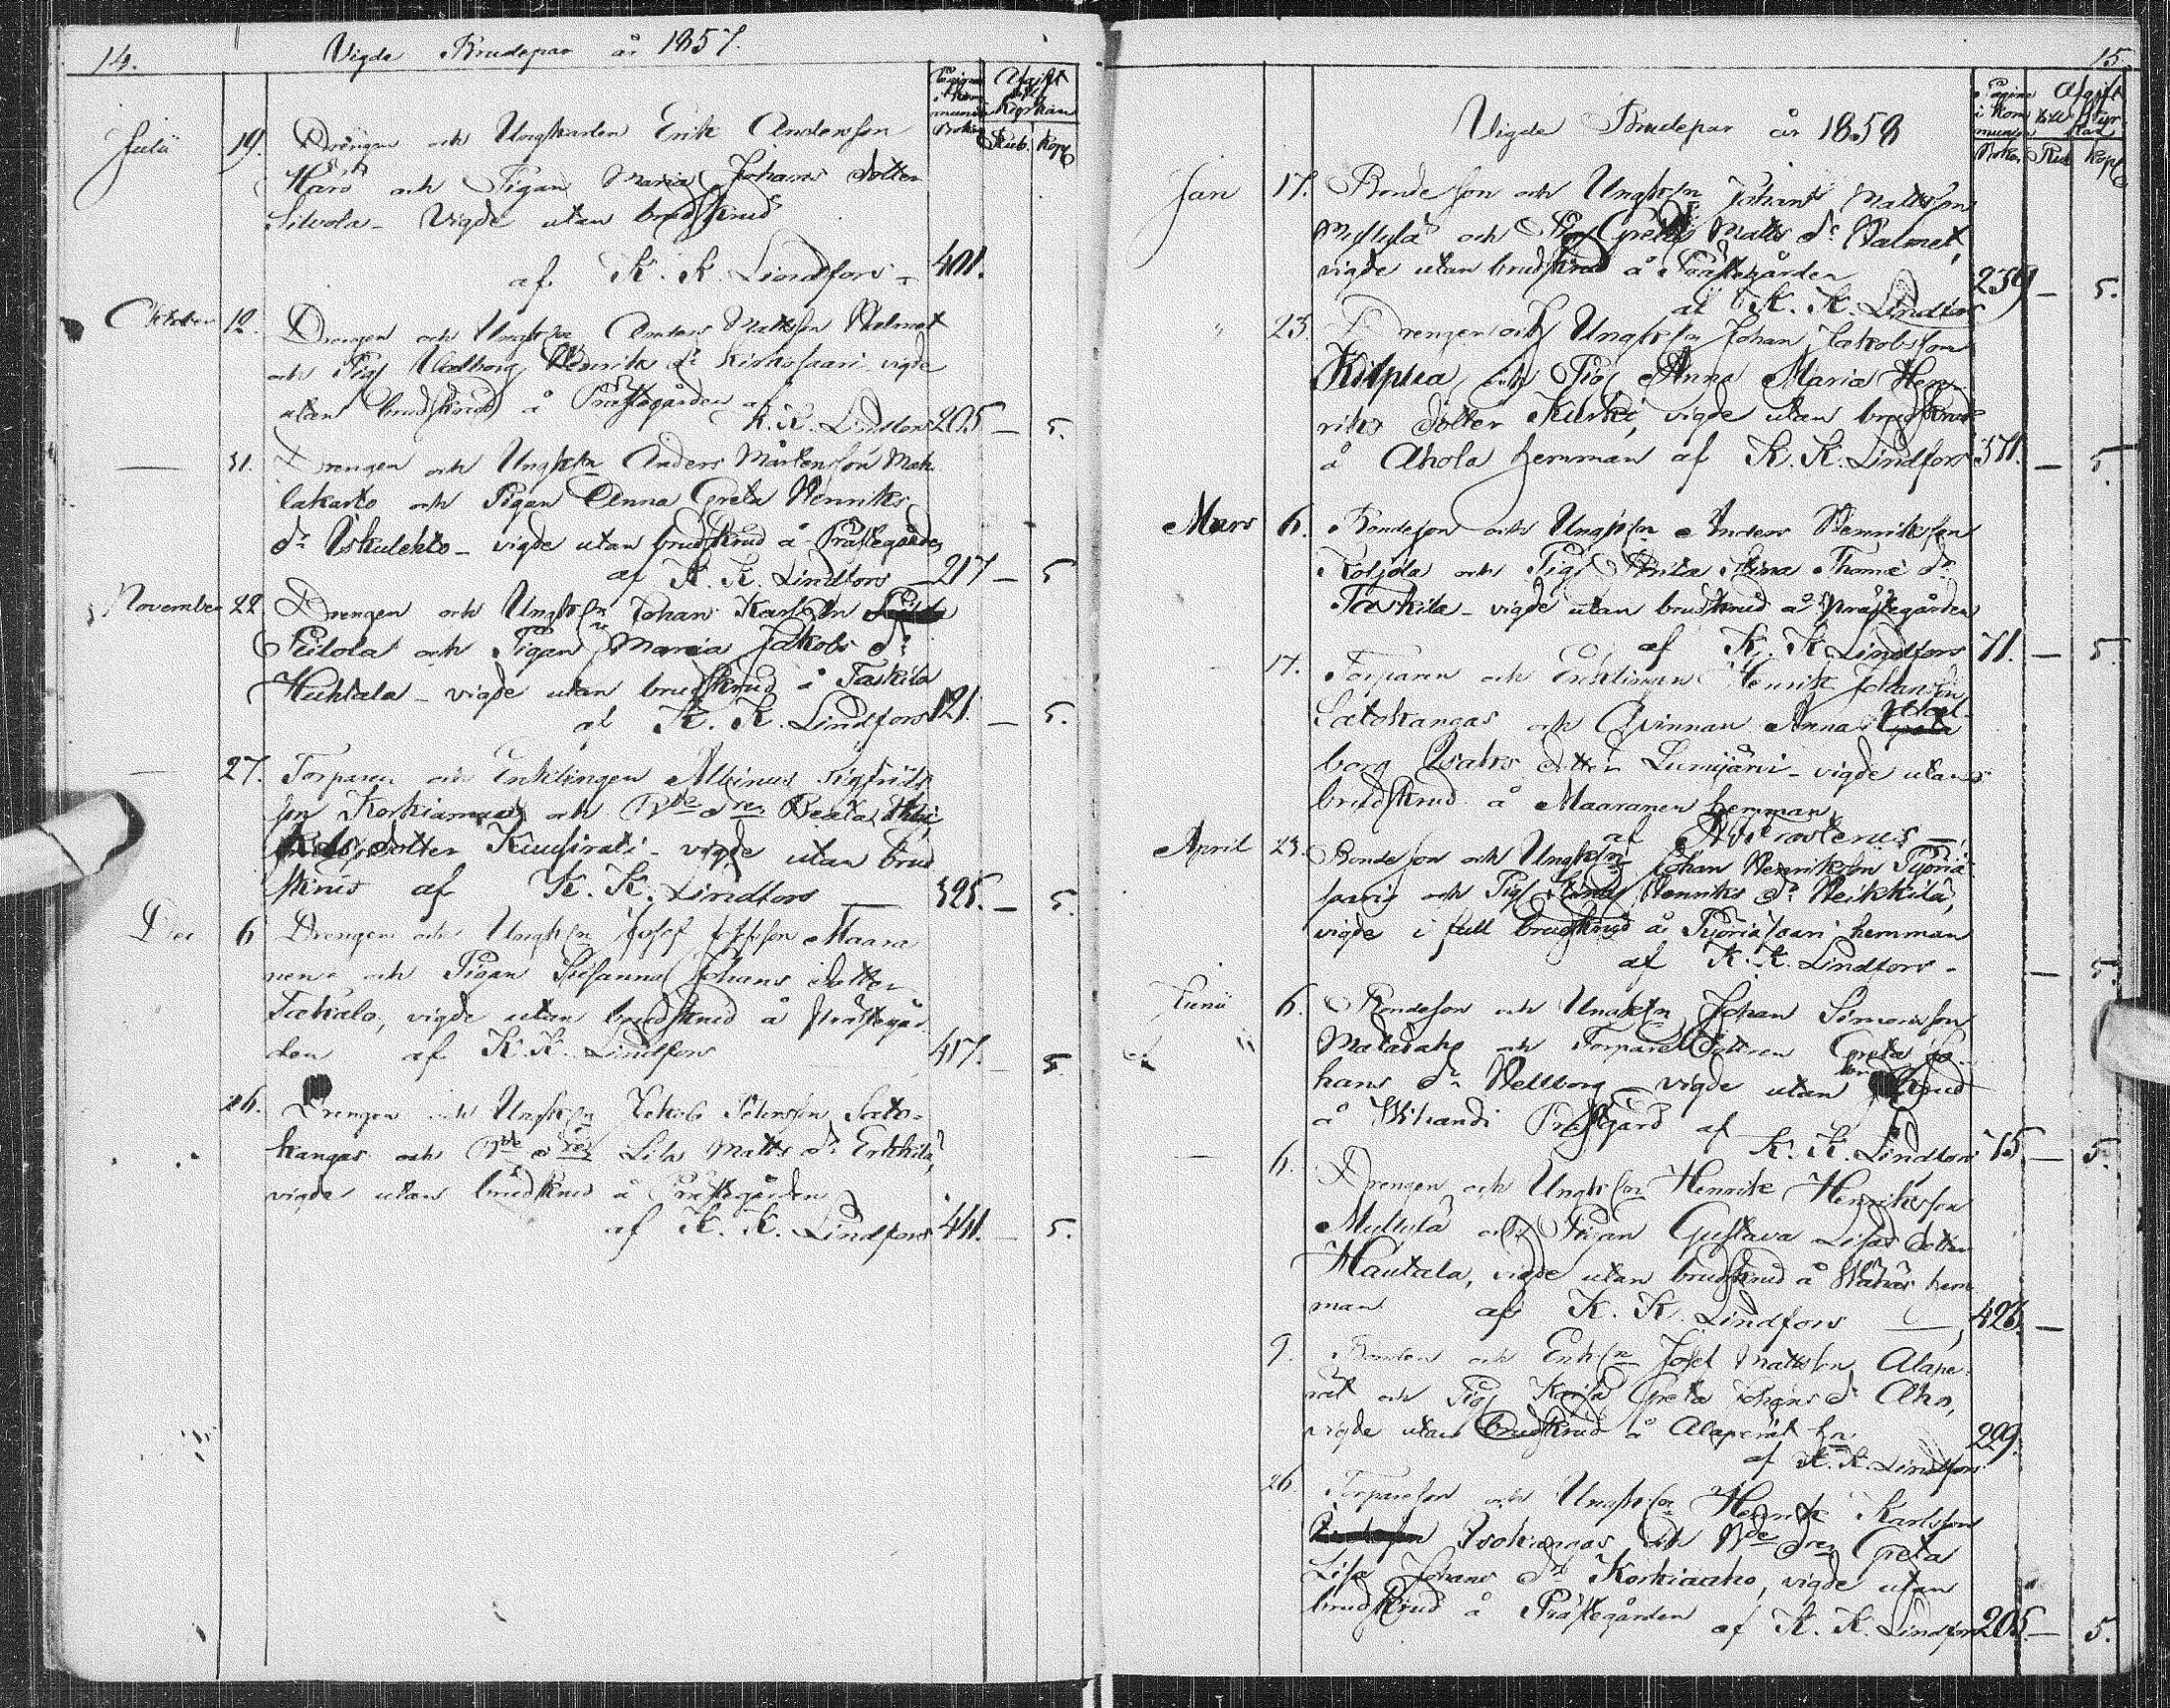 14.
Vigde Brudepar år 1857.
Pagina i Kommunion Boken
Afgift till Kyrkan
Rub. Kop
Julii 19. Drengen och Ungkarlen Erik Andersson
Haro och Pigan Maria Johans dotter
Silvola - Vigde utan brudskrud
af K. K. Lindfors - 401.
October 12. Drengen och Ungkn Anders Mattsson Palmet
och Pig Walborg Henriks dr Kirkosaari vigde
utan brudskrud å Prästegården af
K. K. Lindfors 205 — 5.
— 31. Drengen och Ungkn Anders Mårtensson Mah
lakarto och Pigan Anna Greta Henriks
dr Iskulehto - vigde utan brudskrud å Prästegården
af K. K. Lindfors — 217 — 5
November 22. Drengen och Ungkn Johan Karlsson
Piilola och Pigan Maria Jakobs dr
Huhtala - vigde utan brudskrud å Taskila
af K. K. Lindfors 121. — 5.
— 27. Torparen och Enklingen Albinus Sigfrids
son Korkiamaa och Bde dren Beata
dotter Kuusirati - vigde utan brud
skrud af K. K. Lindfors — 325. — 5.
Dec 6 Drengen och Ungkn Josef Josefsson Maara
nen - och Pigan Susanna Johans dotter
Takalo, vigde utan brudskrud å Prästegår
den af K. K. Lindfors 417. — 5.
26. Drengen och Ungkn Jakob Petersson Sato-
kangas och Bde dren Lisa Matts dr Erkkilä,
vigde utan brudskrud å Prästegården
af K. K. Lindfors 441. — 5.
15.
Vigde Brudepar år 1858
Pagina i Kommunion Boken
Afgift till Kyrkan
Rub Kop
Jan 17. Bondeson och Ungkn Johan Mattsson
Myllylä och Pig Greta Matts dr Palmet,
vigde utan brudskrud å Prästegården
af K. K. Lindfors 239 — 5.
" 23. Drengen och Ungkn Johan Jakobsson
Kilpua, och Pig Anna Maria Hen-
riks dotter Kuski, vigde utan brudskrud
å Ahola hemman af K. K. Lindfors 371. — 5.
Mars 6. Bondeson och Ungkn Anders Henriksson
Koljola och Pig Brita Stina Thome dr
Taskila - vigde utan brudskrud å Prästegården
af K. K. Lindfors 71. — 5.
— 17. Torparen och Enklingen Henrik Johansson
Satokangas och Qvinnan Anna Wal-
borg Isaks dotter Lumijärvi - vigde utan
brudskrud å Maaranen hemman
af
April 23. Bondeson och Ungkn Johan Henriksson Pyöriä
saari och Pig Henriks dr Heikkilä,
vigde i full brudskrud å Pyöriäsaari hemman
af K. K. Lindfors - — 5.
Junii 6. Bondeson och Ungkn Johan Simonsson
Mataaho och Torparedottren Greta Jo-
hans dr Hellborg - vigde utan brudskrud
å Wihandi Prästgård af
K. K. Lindfors 75. — 5.
— 6. Drengen och Ungkn Henrik Henriksson
Myllylä och Pigan Gustava Lisas dotter
Hautala, vigde utan brudskrud å hem
man af K. K. Lindfors — 423. —
9. Bonden och Enkn Josef Mattsson Alape-
rät och Pig Kajsa Greta Johans dr Aho,
vigde utan brudskrud å Alaperät hn
af K. K. Lindfors 299.
26. Torpareson och Ungkn Henrik Karlsson
Isokangas och Bde dren Greta
Lisa Johans dr Korkiaaho, vigde utan
brudskrud å Prästegården
af K. K. Lindfors 205. — 5.